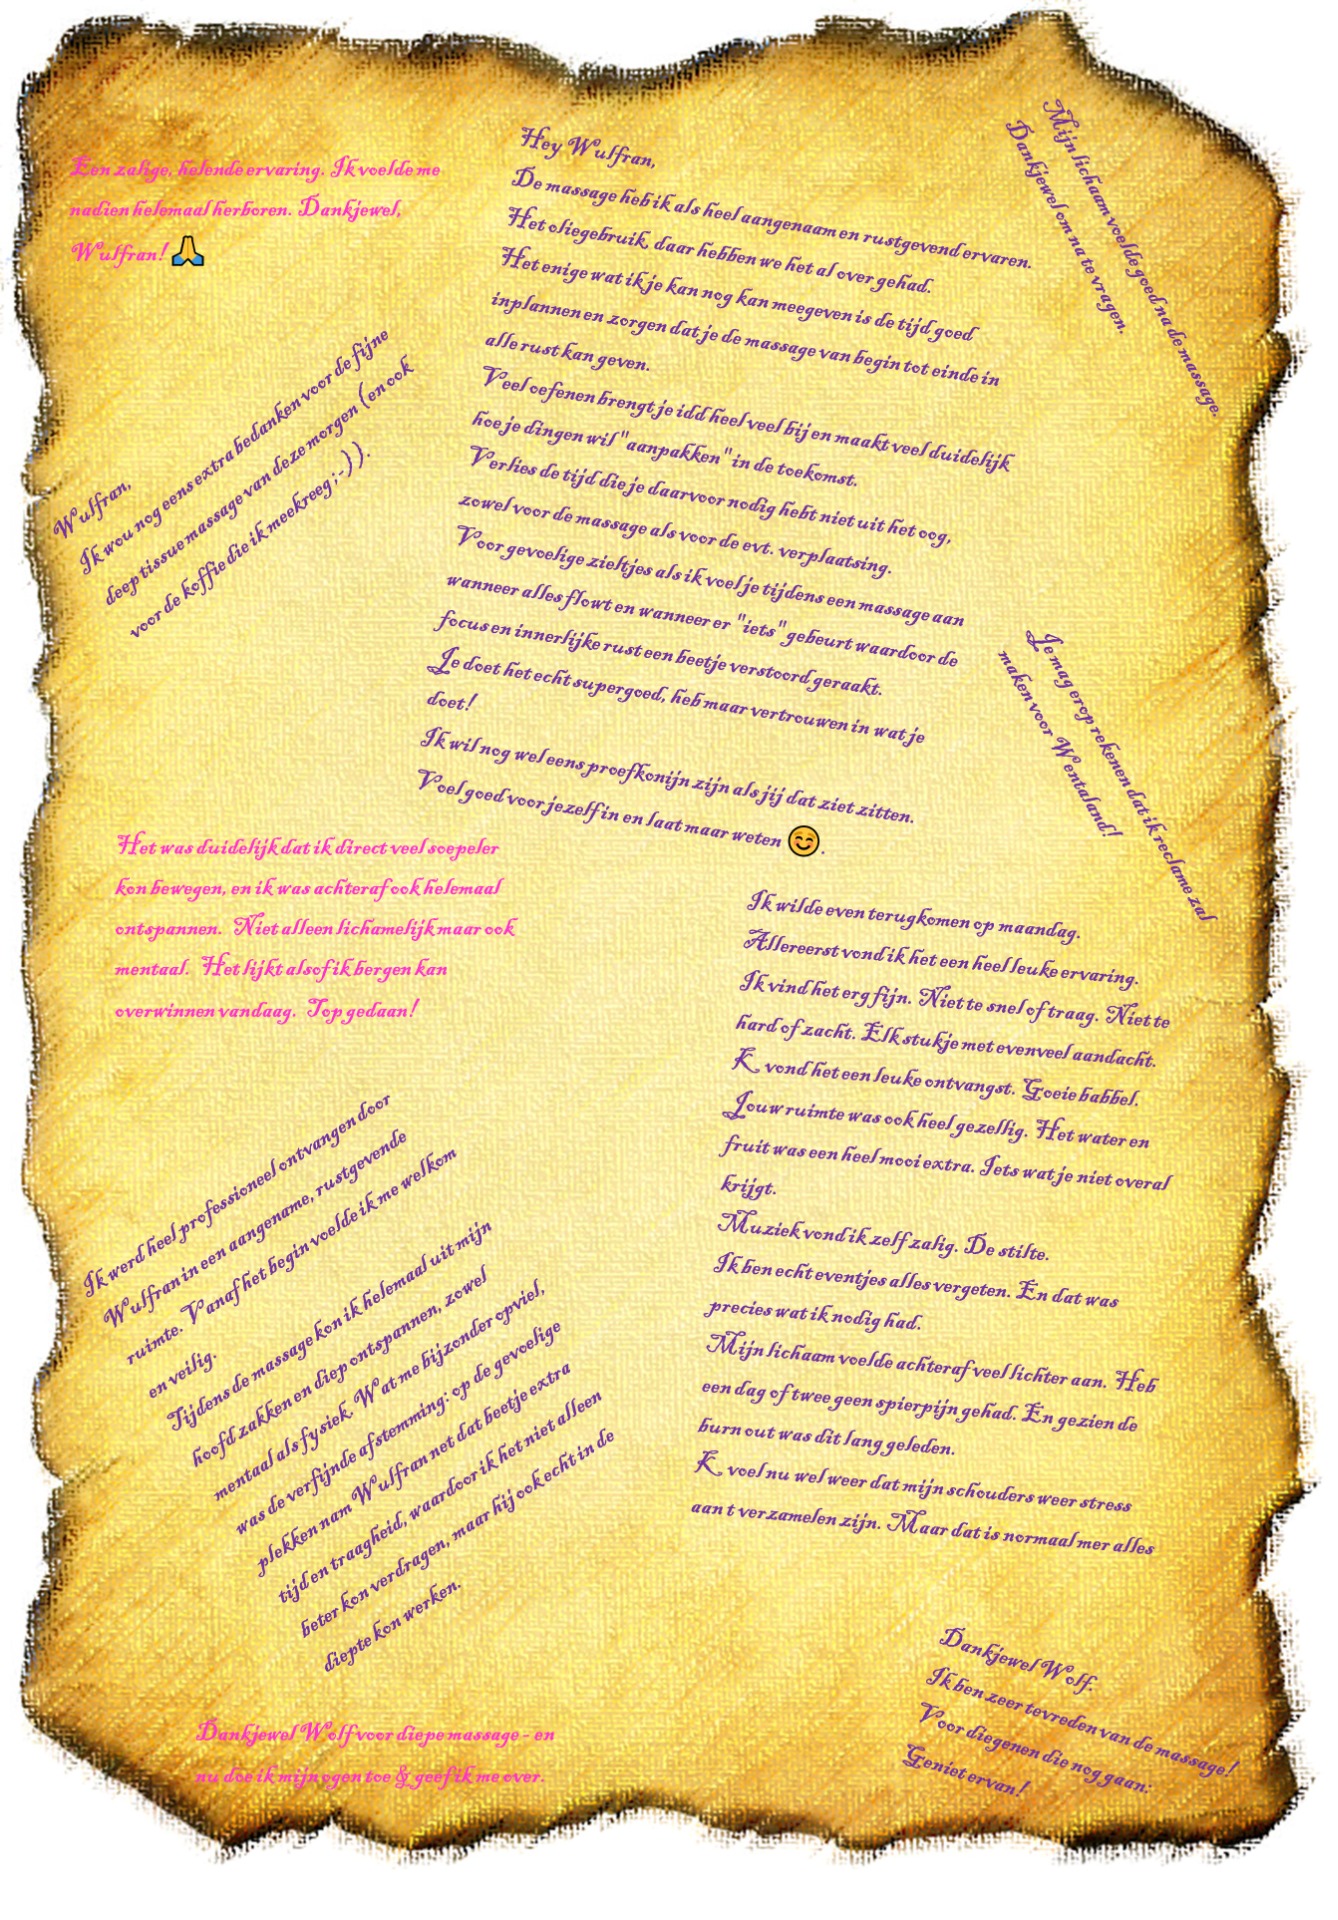 Een zalige, helende ervaring. Ik voelde me
nadien helemaal herboren. Dankjewel,
Wulfran! 🙏
Hey Wulfran,
De massage heb ik als heel aangenaam en rustgevend ervaren.
Het oliegebruik, daar hebben we het al over gehad.
Het enige wat ik je kan nog kan meegeven is de tijd goed
inplannen en zorgen dat je de massage van begin tot einde in
alle rust kan geven.
Veel oefenen brengt je idd heel veel bij en maakt veel duidelijk
hoe je dingen wil "aanpakken" in de toekomst.
Verlies de tijd die je daarvoor nodig hebt niet uit het oog,
zowel voor de massage als voor de evt. verplaatsing.
Voor gevoelige zieltjes als ik voel je tijdens een massage aan
wanneer alles flowt en wanneer er "iets" gebeurt waardoor de
focus en innerlijke rust een beetje verstoord geraakt.
Je doet het echt supergoed, heb maar vertrouwen in wat je
doet!
Ik wil nog wel eens proefkonijn zijn als jij dat ziet zitten.
Voel goed voor jezelf in en laat maar weten 😊.
Mijn lichaam voelde goed na de massage.
Dankjewel om na te vragen.
Wulfran,
Ik wou nog eens extra bedanken voor de fijne
deep tissue massage van deze morgen (en ook
voor de koffie die ik meekreeg ;-) ).
Je mag erop rekenen dat ik reclame zal
maken voor Wentaland!
Het was duidelijk dat ik direct veel soepeler
kon bewegen, en ik was achteraf ook helemaal
ontspannen. Niet alleen lichamelijk maar ook
mentaal. Het lijkt alsof ik bergen kan
overwinnen vandaag. Top gedaan!
Ik wilde even terugkomen op maandag.
Allereerst vond ik het een heel leuke ervaring.
Ik vind het erg fijn. Niet te snel of traag. Niet te
hard of zacht. Elk stukje met evenveel aandacht.
K vond het een leuke ontvangst. Goeie babbel.
Jouw ruimte was ook heel gezellig. Het water en
fruit was een heel mooi extra. Iets wat je niet overal
krijgt.
Muziek vond ik zelf zalig. De stilte.
Ik ben echt eventjes alles vergeten. En dat was
precies wat ik nodig had.
Mijn lichaam voelde achteraf veel lichter aan. Heb
een dag of twee geen spierpijn gehad. En gezien de
burn out was dit lang geleden.
K voel nu wel weer dat mijn schouders weer stress
aan t verzamelen zijn. Maar dat is normaal mer alles
Ik werd heel professioneel ontvangen door
Wulfran in een aangename, rustgevende
ruimte. Vanaf het begin voelde ik me welkom
en veilig.
Tijdens de massage kon ik helemaal uit mijn
hoofd zakken en diep ontspannen, zowel
mentaal als fysiek. Wat me bijzonder opviel,
was de verfijnde afstemming: op de gevoelige
plekken nam Wulfran net dat beetje extra
tijd en traagheid, waardoor ik het niet alleen
beter kon verdragen, maar hij ook echt in de
diepte kon werken.
Dankjewel Wolf voor diepe massage - en
nu doe ik mijn ogen toe & geef ik me over.
Dankjewel Wolf.
Ik ben zeer tevreden van de massage!
Voor diegenen die nog gaan:
Geniet ervan!